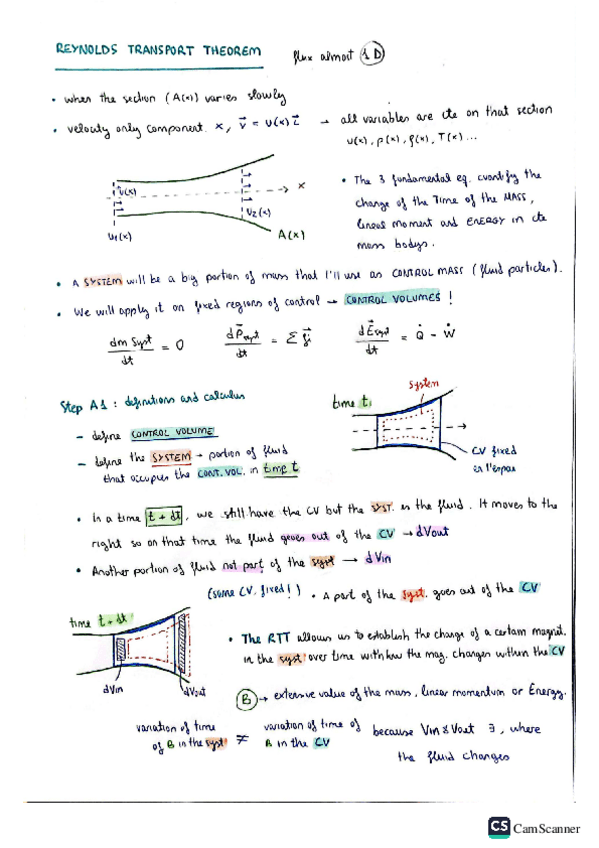 REYNOLDS TRANSPORT THEOREM flux almost 1D
• when the section (A(x)) varies slowly
• velocity only component x, v⃗ = v(x) i⃗ → all variables are cte on that section
v(x), p(x), ρ(x), T(x)...
• The 3 fundamental eq. cuantify the
change of the Time of the MASS,
lineal moment and ENERGY in cte
mass bodys.
v(x)
x
v1(x)
v2(x)
A(x)
• A SYSTEM will be a big portion of mass that I'll use as CONTROL MASS (fluid particles).
• We will apply it on fixed regions of control → CONTROL VOLUMES!
dm syst / dt = 0 dP⃗syst / dt = Σ f⃗i dE⃗syst / dt = Q̇ - Ẇ
Step A1: definitions and calculus
– define CONTROL VOLUME
– define the SYSTEM → portion of fluid
that occupies the CONT. VOL. in time t
time t,
system
CV fixed
en l'espai
• In a time t + dt, we still have the CV but the SYST. is the fluid. It moves to the
right so on that time the fluid goes out of the CV → dVout
• Another portion of fluid not part of the syst → dVin
(same CV, fixed!) • A part of the syst. goes out of the CV
time t + dt
dVin
dVout
• The RTT allows us to establish the change of a certain magnit.
in the syst over time with how the mag. changes within the CV
B → extensive value of the mass, linear momentum or Energy.
variation of time
of B in the syst
≠
variation of time of
B in the CV
because Vin & Vout ∃, where
the fluid changes
CS CamScanner